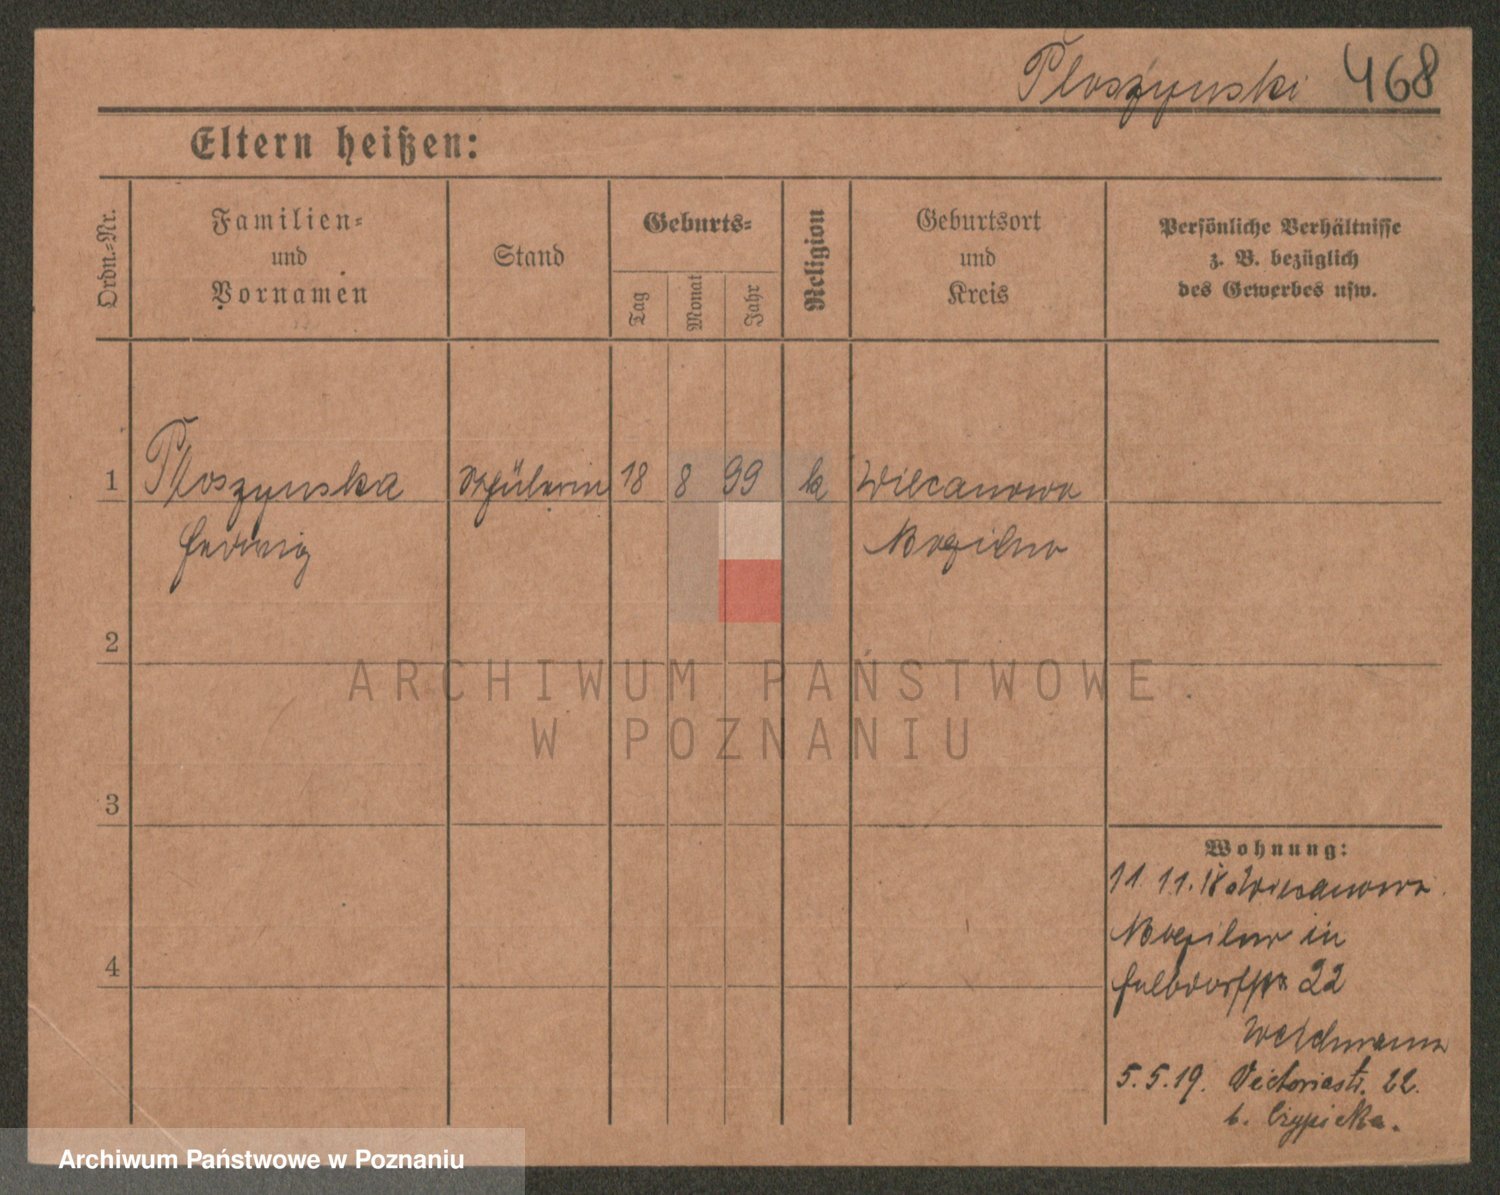 Ploszynski 468
Eltern heißen:
Ordn.=Nr.
Familien=
und
Vornamen
Stand
Geburts=
Tag
Monat
Jahr
Religion
Geburtsort
und
Kreis
Persönliche Verhältnisse
z. B. bezüglich
des Gewerbes usw.
1 Ploszynska Schülerin 18 8 99 k Wilcanowo
Hedwig Mogilno
2
3
4
Wohnung:
11. 11. 18
Mogilno in
22
5. 5. 19. Victoriastr. 22.
b. Czypicka.
ARCHIWUM PAŃSTWOWE
W POZNANIU
Archiwum Państwowe w Poznaniu